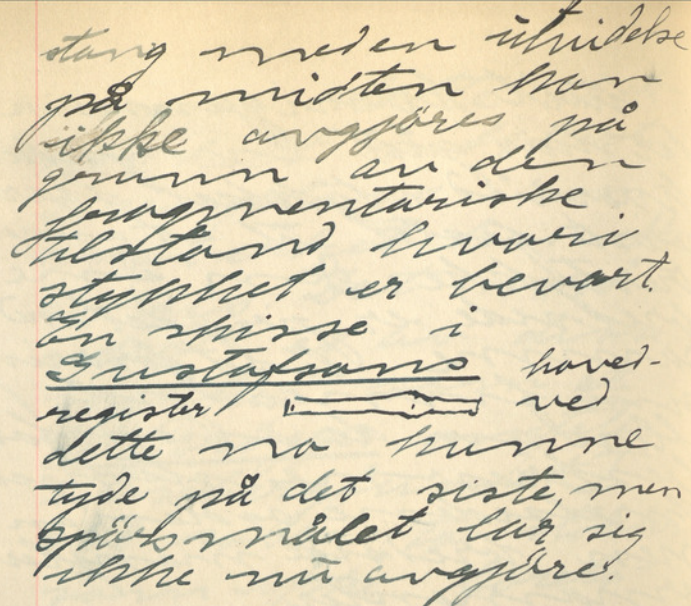 stang med en utvidelse
på midten kan
ikke avgjöres på
grunn av den
fragmentariske
tilstand hvori
stykket er bevart.
En skisse i
Gustafsons hoved-
register ved
dette no kunne
tyde på det siste, men
spörsmålet lar sig
ikke nu avgjöre.